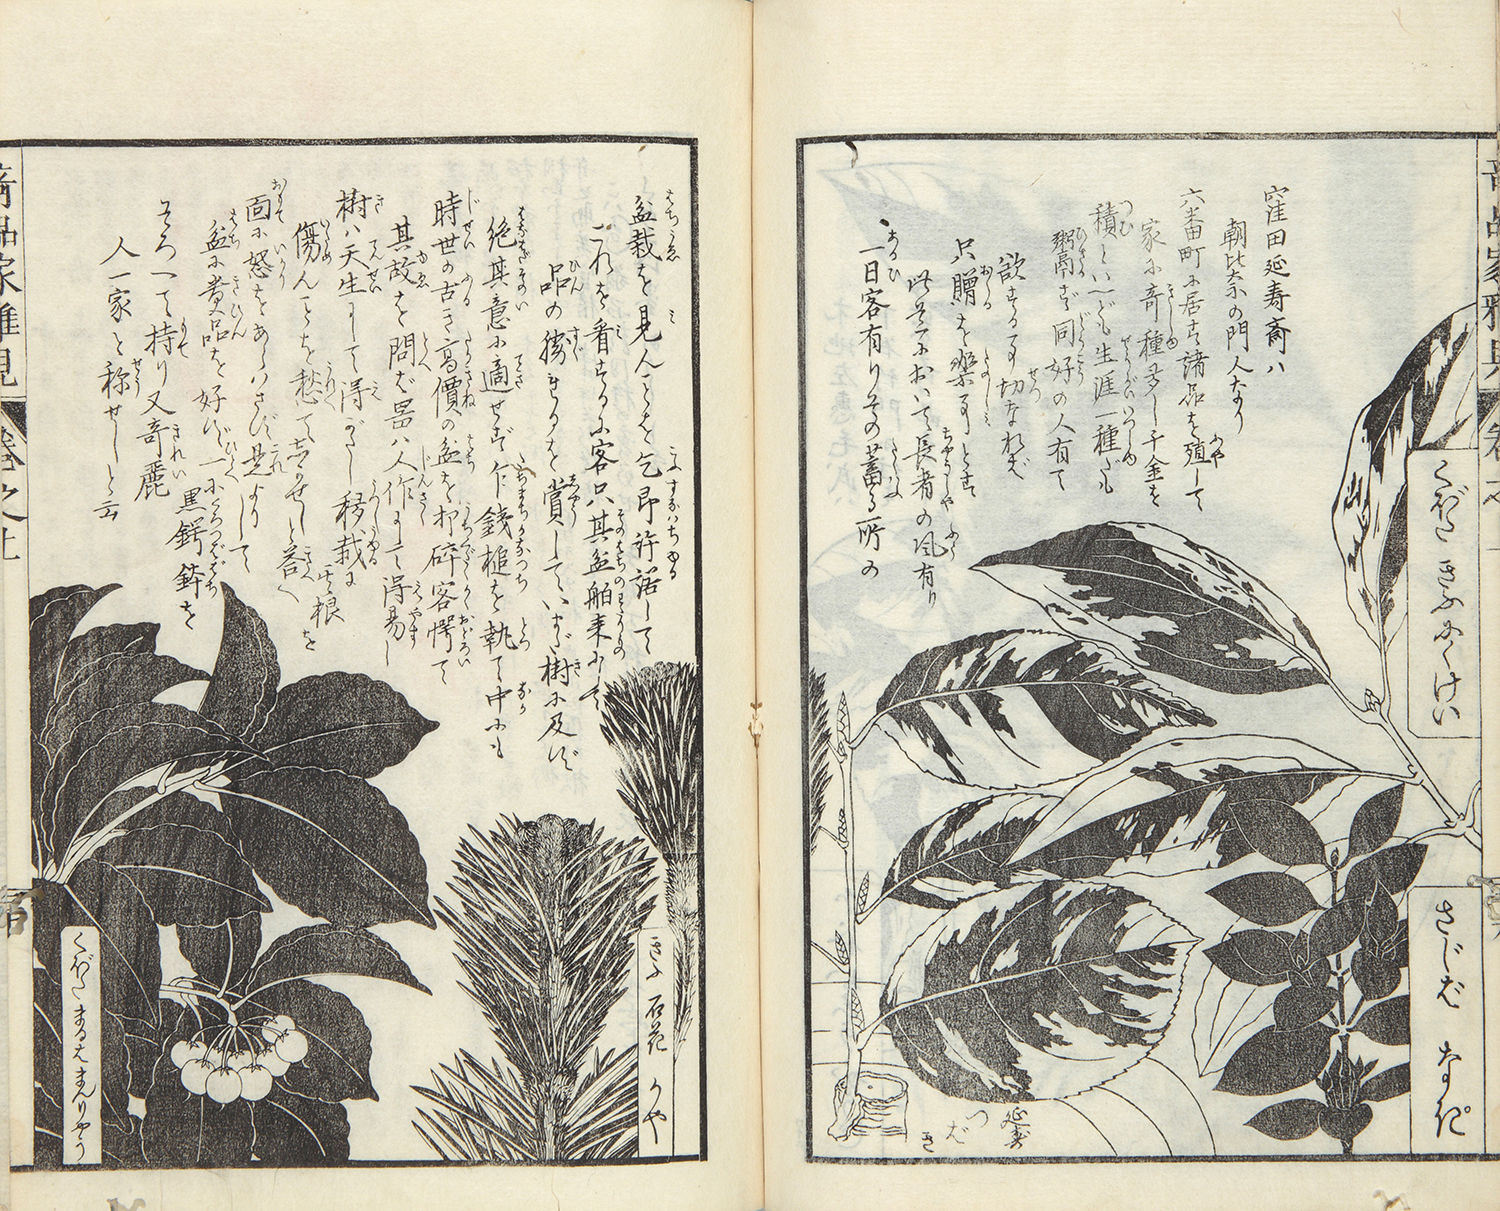 窪田延寿斎ハ
朝比奈の門人なり
六番町に居す諸品を殖して
家に奇種多し千金を
積といへども生涯一種だも
鬻ず同好の人有て
欲する事切なれば
只贈を楽事とす
此業において長者の風有り
一日客有り其の蓄る所の
くぼた きふ
さじば なすび
延寿
つばき
盆栽を見んことを乞即許諾して
これを看するに客只其盆舶来にして
品の勝れるを賞していまだ樹に及ず
絶其意に適せず乍銭槌を執て中にも
時世の古き高價の盆を打砕客愕て
其故を問ば器ハ人作にして得易し
樹ハ天生にして得がたし移栽に
傷んことを愁て志かせしと答へ其根を
面に怒をあらハさず是よりして
盆に貴品を好ず一に黒鍔鉢を
そろへて持り又奇麗
人一家と称せしと云
きふ 石菘 かや
くぼた まるはまんりやう
奇品家雅見
巻之上